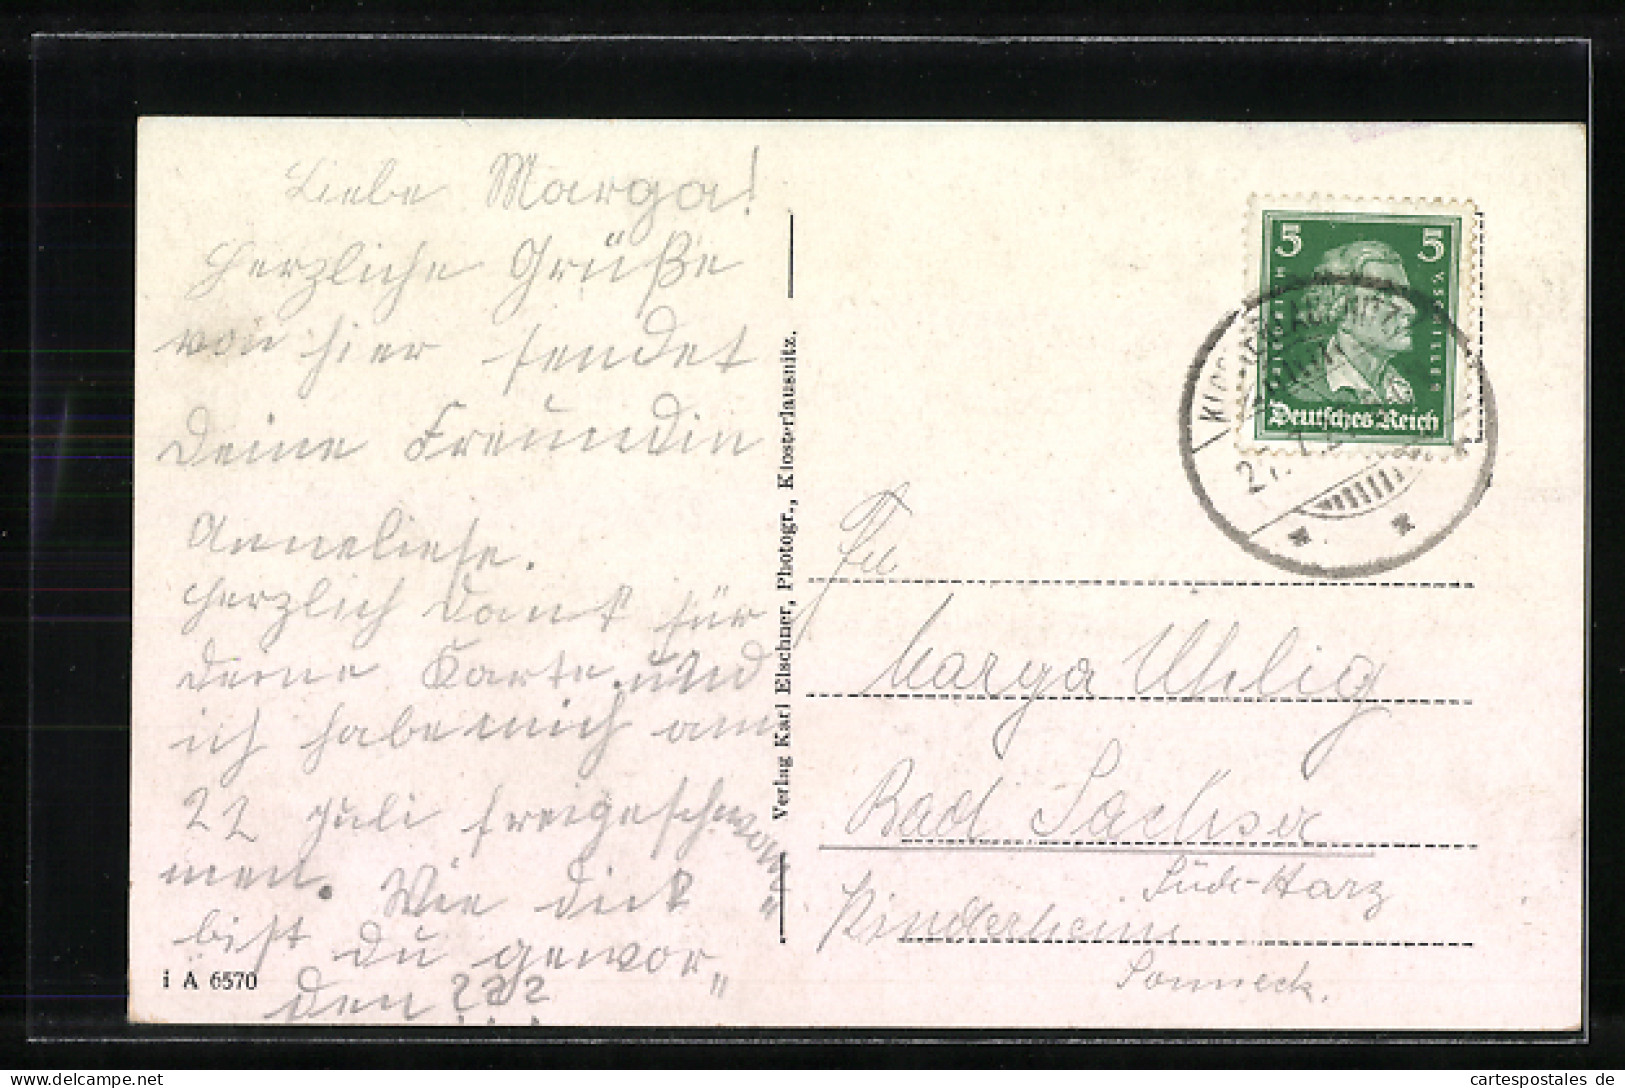 Liebe Marga!
Herzliche Grüße
von hier sendet
Deine Freundin
Anneliese.
Herzlich Dank für
deine Karte. und
ich habe mich am
22 Juli freigeschwom"
men. Wie dick
bist du gewor"
den ???
i A 6570
Verlag Karl Elschner, Photogr., Klosterlausnitz.
5 5
FRIEDRICH V SCHILLER
Deutsches Reich
Marga Uhlig
Bad Sachsa
Süd-Harz
Kinderheim
Sonneck.
cartespostales de